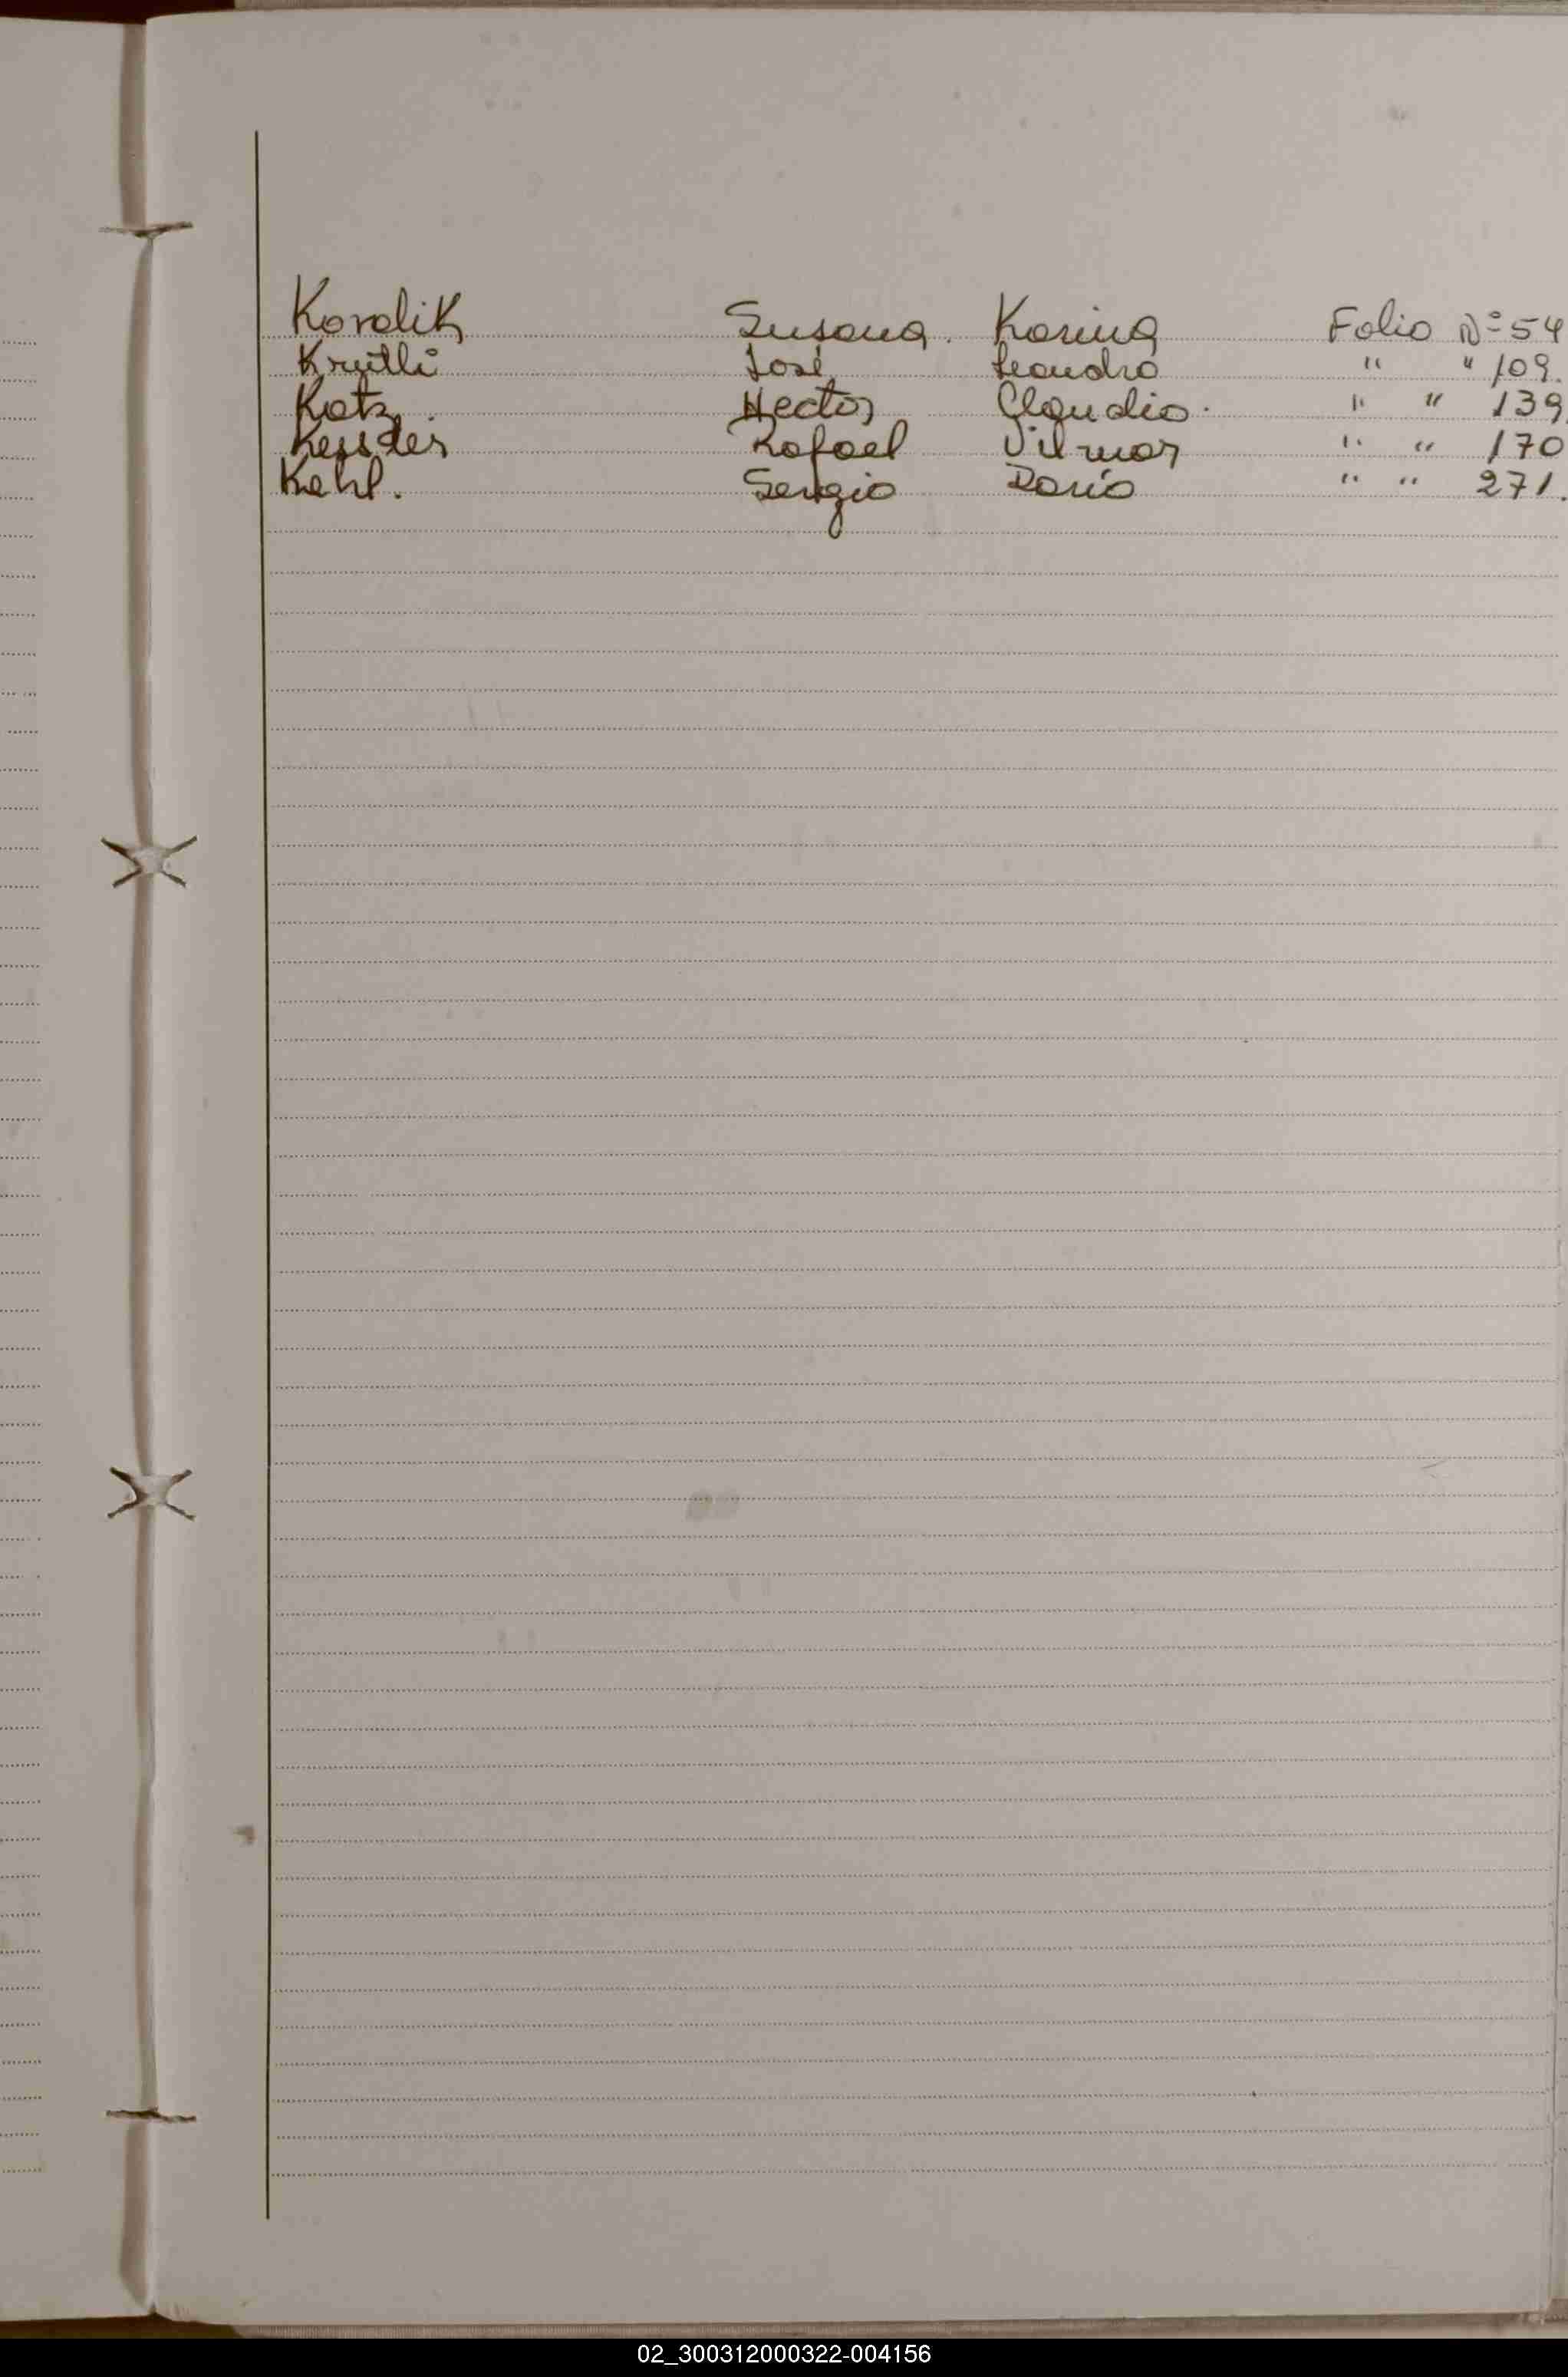 Koralik Susana. Karina Folio Nº 54
Krütli José Leandro " " 109.
Katz. Hector Claudio. " " 139.
Kessler Rafael Vilmar " " 170
Kehl. Sergio Dario " " 271.
02_300312000322-004156